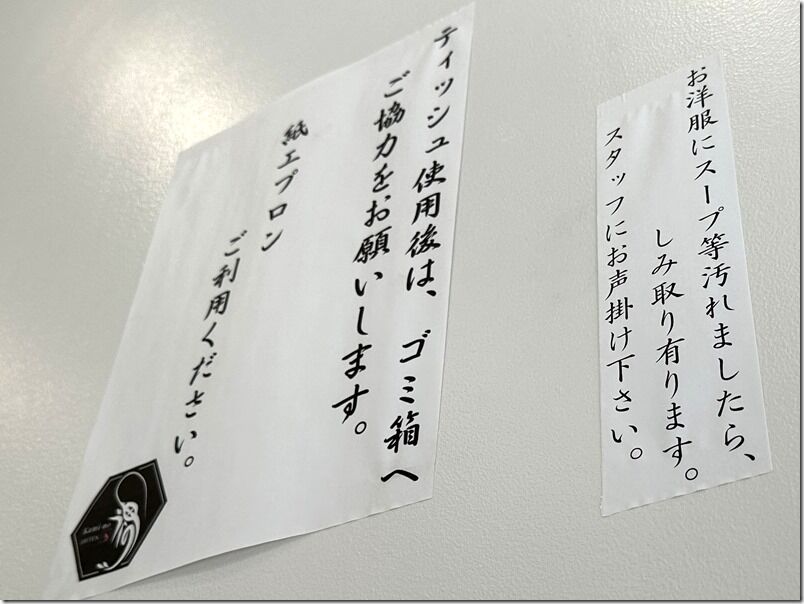 お洋服にスープ等汚れましたら、
しみ取り有ります。
スタッフにお声掛け下さい。
ティッシュ使用後は、ゴミ箱へ
ご協力をお願いします。
紙エプロン
ご利用ください。
Kami no